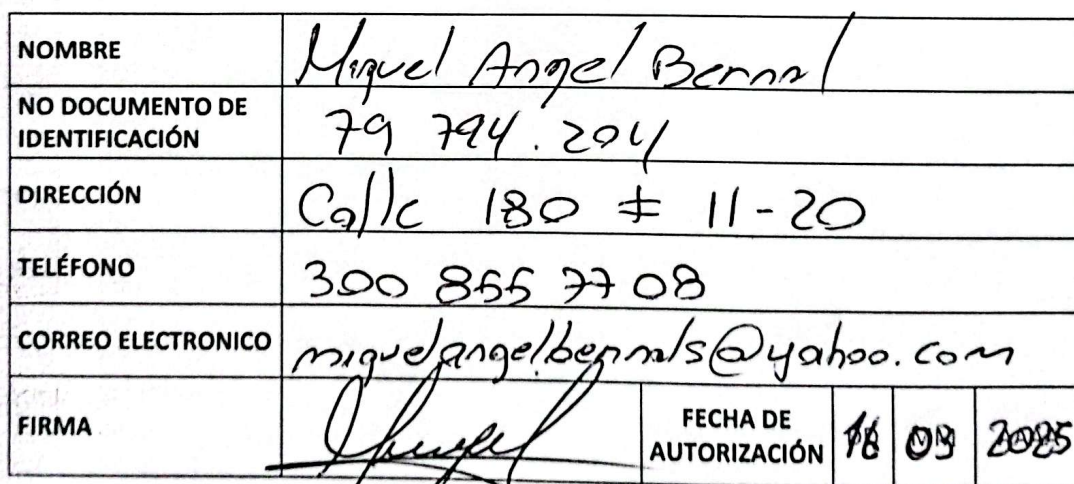 NOMBRE Miguel Angel Bernal
NO DOCUMENTO DE
IDENTIFICACIÓN 79 794.204
DIRECCIÓN Calle 180 # 11-20
TELÉFONO 300 855 77 08
CORREO ELECTRONICO miguelangelbernals@yahoo.com
FIRMA
FECHA DE
AUTORIZACIÓN 16 09 2025